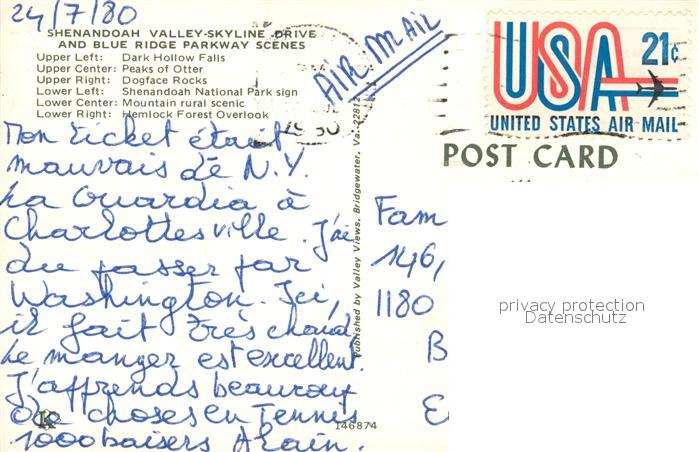 24/7/80
SHENANDOAH VALLEY-SKYLINE DRIVE
AND BLUE RIDGE PARKWAY SCENES
Upper Left: Dark Hollow Falls
Upper Center: Peaks of Otter
Upper Right: Dogface Rocks
Lower Left: Shenandoah National Park sign
Lower Center: Mountain rural scenic
Lower Right: Hemlock Forest Overlook
AIR MAIL
USA 21¢
UNITED STATES AIR MAIL
POST CARD
Mon ticket était
mauvais de N.Y.
La Guardia à
Charlottesville. J'ai
du passer par
Washington. Ici,
il fait très chaud.
Le manger est excellent.
J'apprends beaucoup
de choses en Tennis
1000 baisers Alain.
Published by Valley Views, Bridgewater, Va. 22812
146874
K
Fam
146,
1180
B
E
privacy protection
Datenschutz